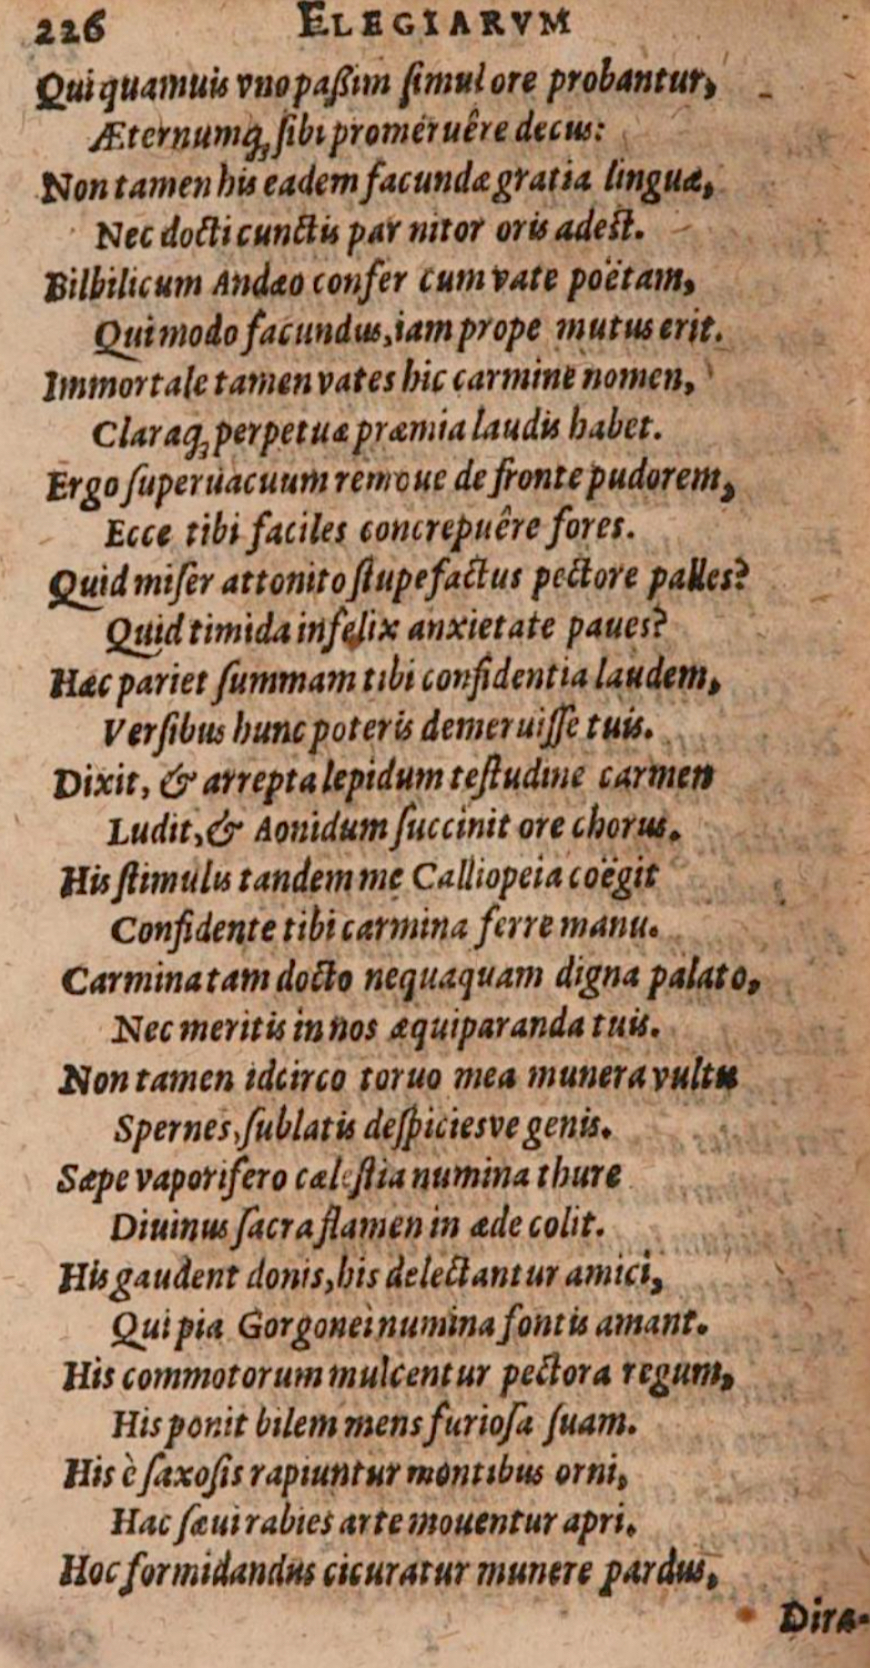 226 ELEGIARVM
Qui quamuis vno paßim ſimul ore probantur,
Æternumq́; ſibi promeruêre decus:
Non tamen his eadem facundæ gratia linguæ,
Nec docti cunctis par nitor oris adest.
Bilbilicum Andæo confer cum vate poëtam,
Qui modo facundus, iam prope mutus erit.
Immortale tamen vates hic carmine nomen,
Claraq́; perpetuæ præmia laudis habet.
Ergo ſuperuacuum remoue de fronte pudorem,
Ecce tibi faciles concrepuêre fores.
Quid miſer attonito ſtupefactus pectore palles?
Quid timida infelix anxietate paues?
Hæc pariet ſummam tibi confidentia laudem,
Verſibus hunc poteris demeruiſſe tuis.
Dixit, & arrepta lepidum teſtudine carmen
Ludit, & Aonidum ſuccinit ore chorus.
His ſtimulis tandem me Calliopeia coëgit
Confidente tibi carmina ferre manu.
Carmina tam docto nequaquam digna palato,
Nec meritis in nos æquiparanda tuis.
Non tamen idcirco toruo mea munera vultu
Spernes, ſublatis deſpiciesve genis.
Sæpe vaporifero cæleſtia numina thure
Diuinus ſacra flamen in æde colit.
His gaudent donis, his delectantur amici,
Qui pia Gorgonei numina fontis amant.
His commotorum mulcentur pectora regum,
His ponit bilem mens furioſa ſuam.
His è ſaxoſis rapiuntur montibus orni,
Hac ſæui rabies arte mouentur apri.
Hoc formidandus cicuratur munere pardus,
Diræ-